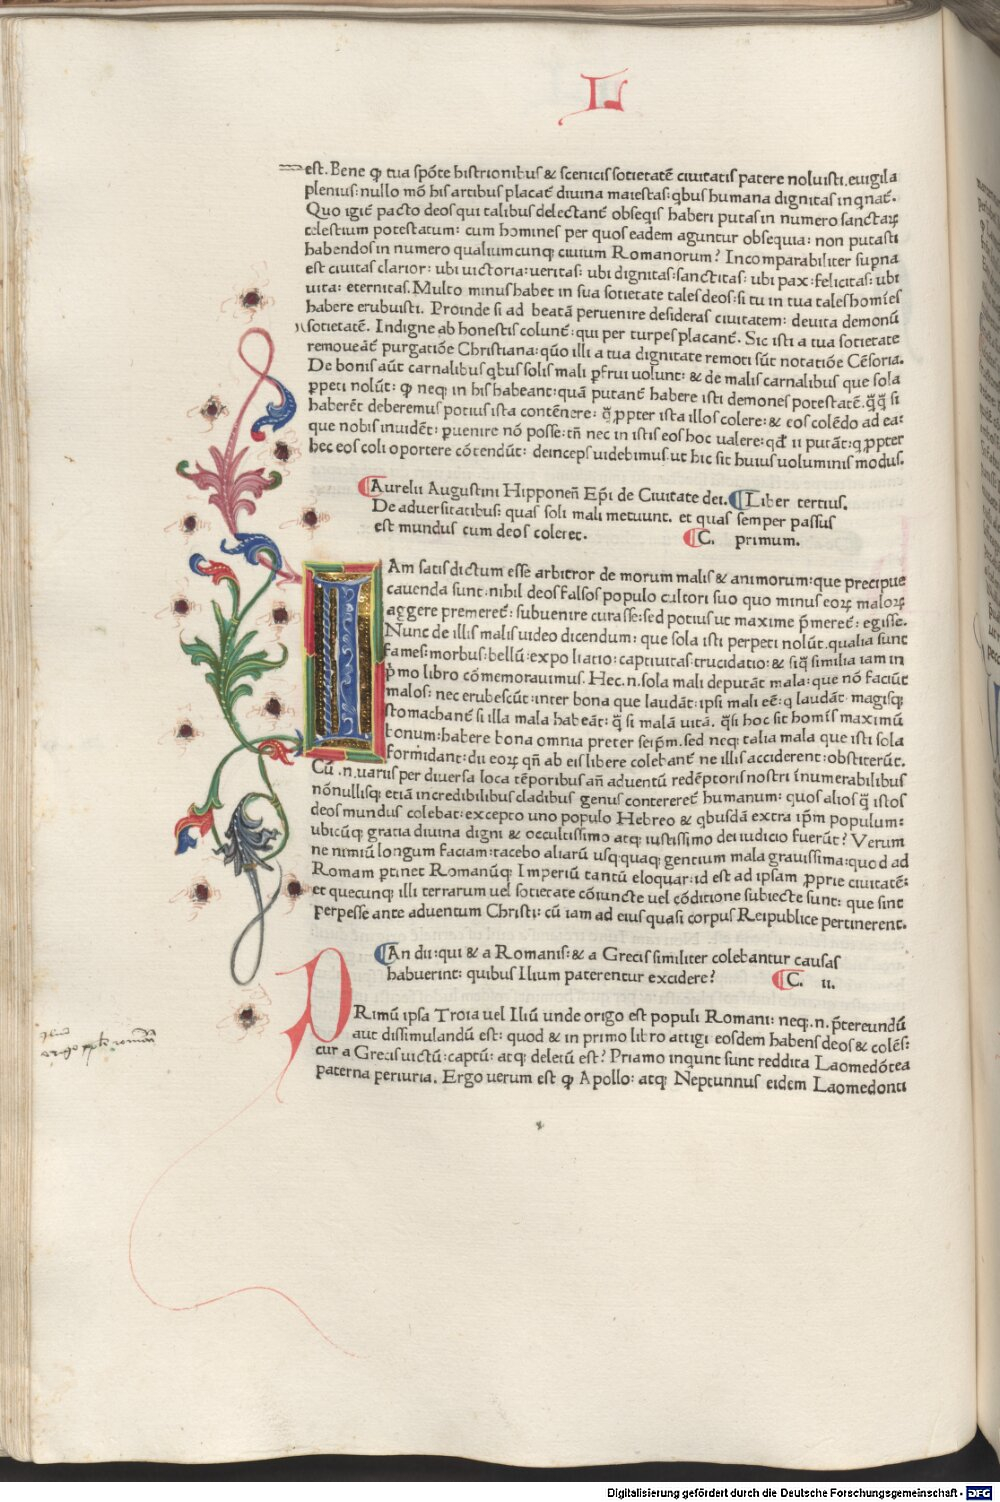 L
est. Bene ꝙ tua spōte histrionibus & scenicis sotietatē ciuitatis patere noluisti. euigila
plenius: nullo mō his artibus placat̄ diuina maiestas: qbus humana dignitas inqnat̄.
Quo igit̄ pacto deos qui talibus delectant̄ obseqis haberi putas in numero sanctaꝝ
celestium potestatum: cum homines per quos eadem aguntur obsequia: non putasti
habendos in numero qualiumcunq; ciuium Romanorum? Incomparabiliter supna
est ciuitas clarior: ubi uictoria: ueritas: ubi dignitas: sanctitas: ubi pax: felicitas: ubi
uita: eternitas. Multo minus habet in sua sotietate tales deos: si tu in tua tales homīes
habere erubuisti. Proinde si ad beatā peruenire desideras ciuitatem: deuita demonū
sotietatē. Indigne ab honestis colunt̄: qui per turpes placant̄. Sic isti a tua sotietate
remoueāt̄ purgatiōe Christiana: quō illi a tua dignitate remoti sūt notatiōe Cēsoria.
De bonis aūt carnalibus qbus solis mali ꝑfrui uolunt: & de malis carnalibus que sola
ꝑpeti nolūt: ꝙ neq; in his habeant: quā putant̄ habere isti demones potestatē. q̄q̄ si
haberēt deberemus potius ista contēnere: q̄ ꝓpter ista illos colere: & eos colēdo ad ea:
que nobis inuidēt: ꝑuenire nō posse: tn̄ nec in istis eos hoc ualere: qd̄ ii putāt: q ꝓpter
hec eos coli oportere cōtendūt: deinceps uidebimus: ut hic sit huius uoluminis modus.
Aurelii Augustini Hipponeñ Ep̄i de Ciuitate dei. Liber tertius.
De aduersitatibus: quas soli mali metuunt. et quas semper passus
est mundus cum deos coleret. C. primum.
IAm satis dictum esse arbitror de morum malis & animorum: que precipue
cauenda sunt: nihil deos falsos populo cultori suo quo minus eoꝝ maloꝝ
aggere premeret̄: subuenire curasse: sed potius ut maxime p̄meret̄: egisse.
Nunc de illis malis uideo dicendum: que sola isti perpeti nolūt. qualia sunt
fames: morbus: bellū: expoliatio: captiuitas: trucidatio: & siq̄ similia iam in
p̄mo libro cōmemorauimus. Hec .n. sola mali deputāt mala: que nō faciūt
malos: nec erubescūt: inter bona que laudāt: ipsi mali eē: q laudāt. magisq;
stomachant̄ si illa mala habeāt: q̄ si malā uitā. q̄si hoc sit homīs maximū
bonum: habere bona omnia preter seip̄m. sed neq; talia mala que isti sola
formidant: dii eoꝝ qn̄ ab eis libere colebant̄ ne illis acciderent: obstiterūt.
Cū .n. uariis per diuersa loca tēporibus añ aduentū redēptoris nostri innumerabilibus
nōnullisq; etiā incredibilibus cladibus genus contereret̄ humanum: quos alios q̄ istos
deos mundus colebat: excepto uno populo Hebreo & qbusdā extra ip̄m populum:
ubicūq; gratia diuina digni & occultissimo atq; iustissimo dei iudicio fuerūt? Verum
ne nimiū longum faciam: tacebo aliarū usq; quaq; gentium mala grauissima: quod ad
Romam ptinet Romanūq; Imperiū tantū eloquar: id est ad ipsam ꝓprie ciuitatē:
et quecunq; illi terrarum uel sotietate cōiuncte uel cōditione subiecte sunt: que sint
perpesse ante aduentum Christi: cū iam ad eius quasi corpus Reipublice pertinerent.
An dii: qui & a Romanis: & a Grecis similiter colebantur causas
habuerint: quibus Ilium paterentur excidere? C. ii.
PRimū ipsa Troia uel Iliū unde origo est populi Romani: neq; .n. p̄tereundū
aut dissimulandū est: quod & in primo libro attigi eosdem habens deos & colēs:
cur a Grecis uictū: captū: atq; deletū est? Priamo inqunt sunt reddita Laomedōtea
paterna periuria. Ergo uerum est ꝙ Apollo: atq; Neptunnus eidem Laomedonti
origo
Digitalisierung gefördert durch die Deutsche Forschungsgemeinschaft - DFG